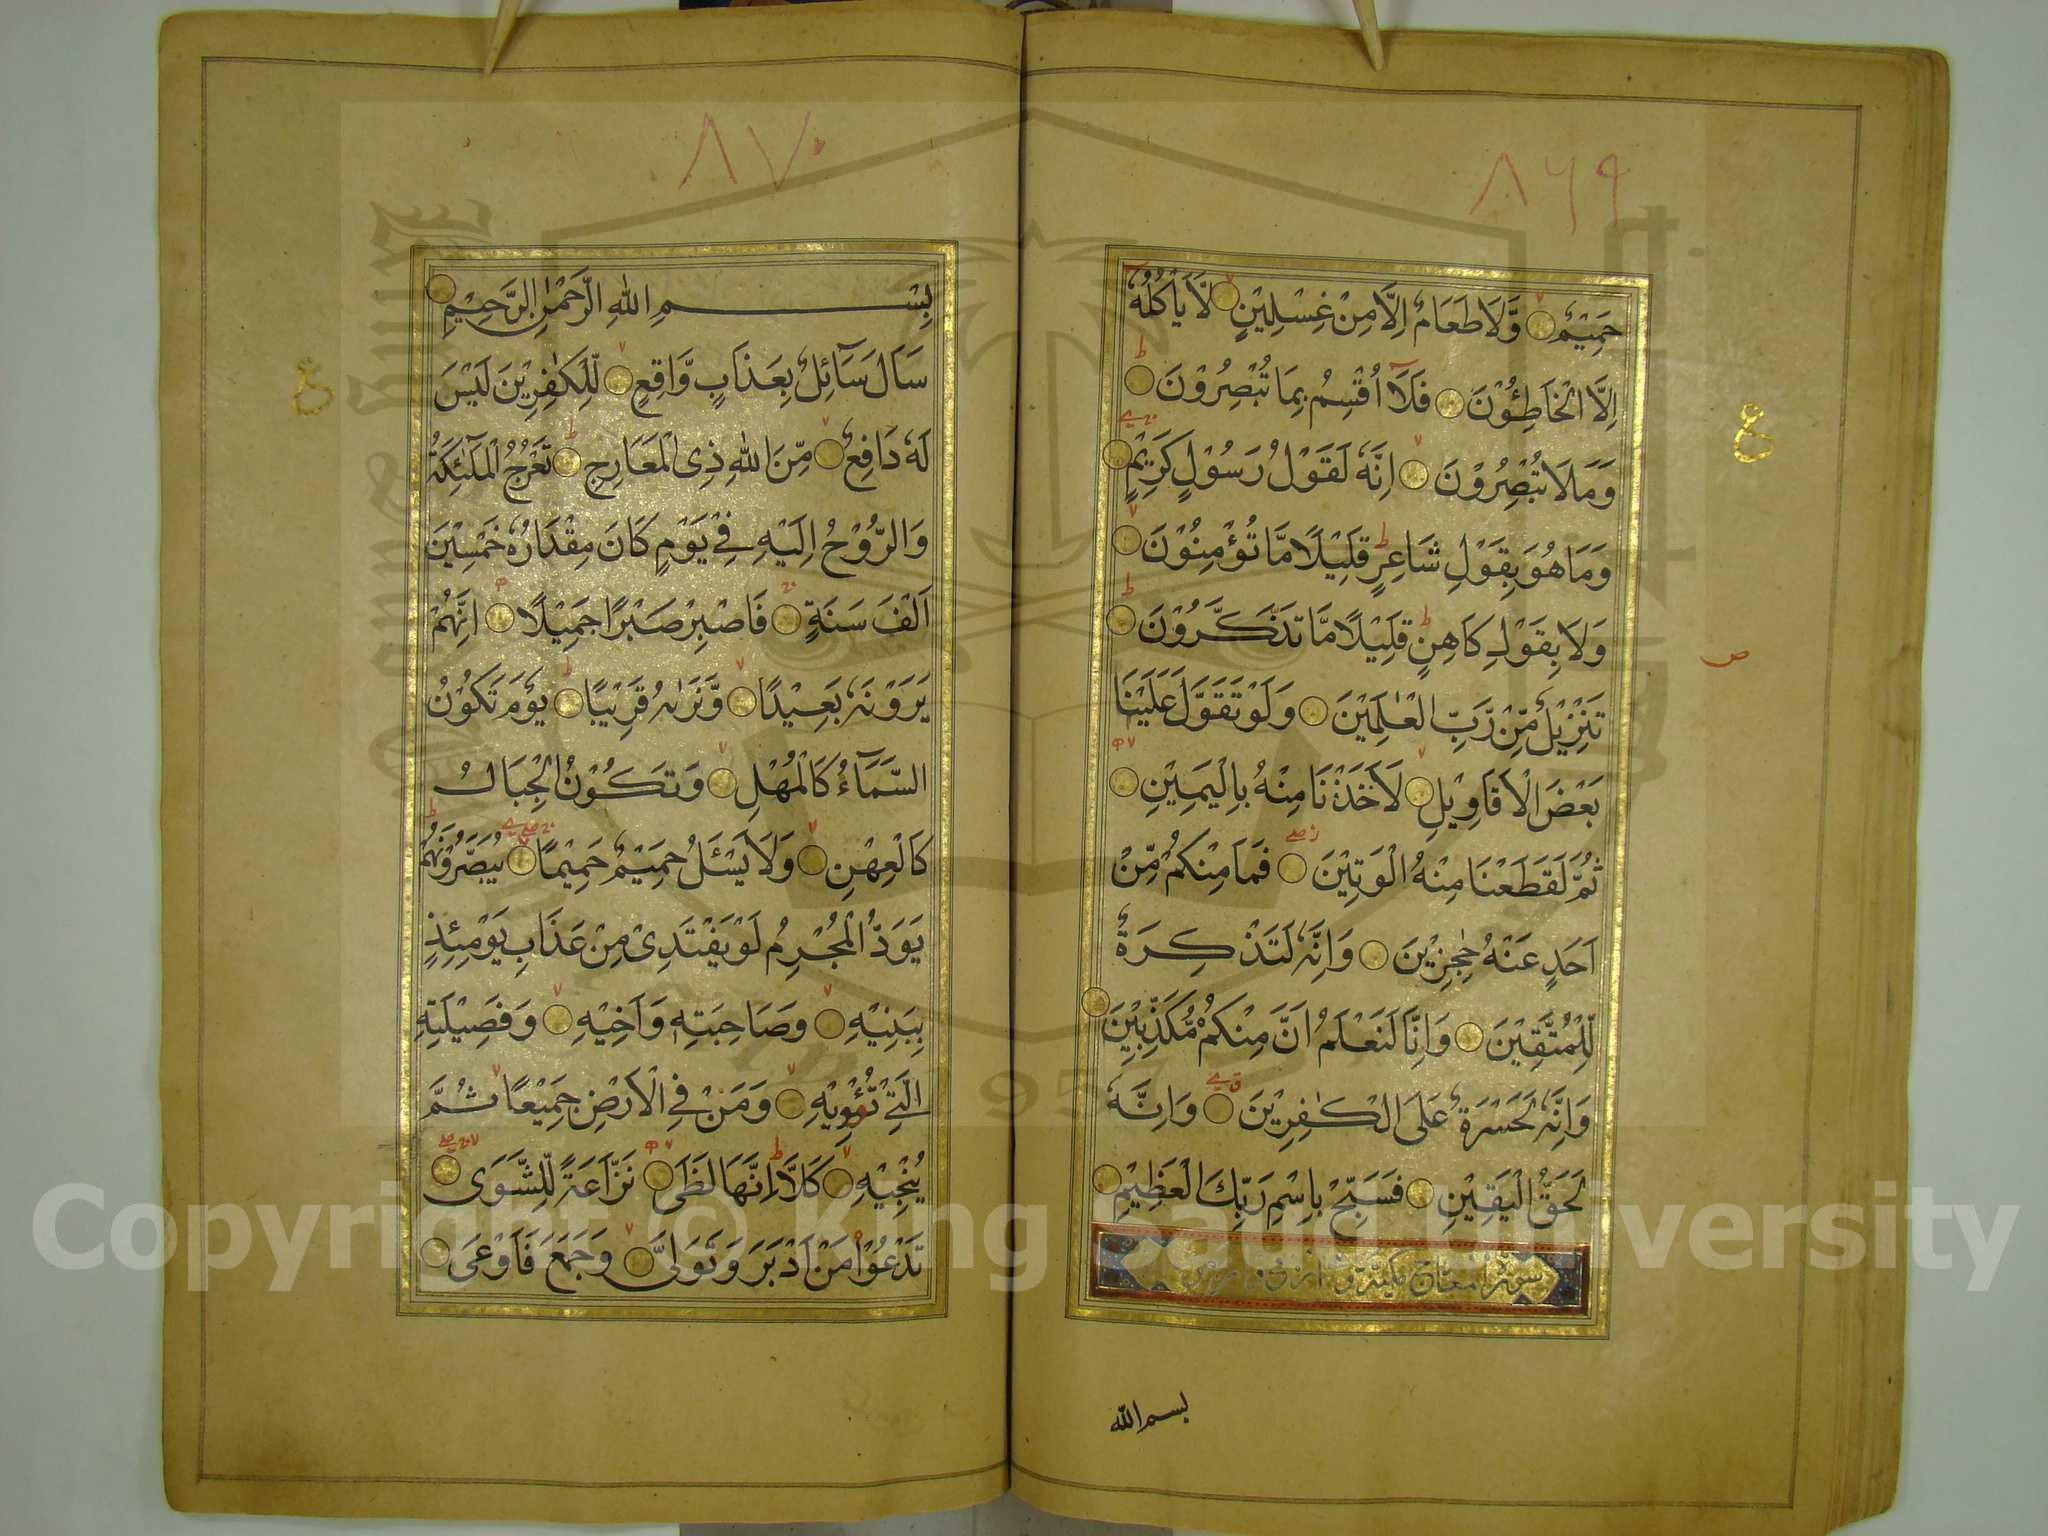 ٨٦٩
حَمِيْمٌ وَّلَا طَعَامٌ اِلَّا مِنْ غِسْلِيْنٍ لَّا يَاْكُلُهٗٓ
اِلَّا الْخَاطِئُوْنَ فَلَآ اُقْسِمُ بِمَا تُبْصِرُوْنَ
وَمَا لَا تُبْصِرُوْنَ اِنَّهٗ لَقَوْلُ رَسُوْلٍ كَرِيْمٍ
وَمَا هُوَ بِقَوْلِ شَاعِرٍ قَلِيْلًا مَّا تُؤْمِنُوْنَ
وَلَا بِقَوْلِ كَاهِنٍ قَلِيْلًا مَّا تَذَكَّرُوْنَ
تَنْزِيْلٌ مِّنْ رَّبِّ الْعٰلَمِيْنَ وَلَوْ تَقَوَّلَ عَلَيْنَا
بَعْضَ الْاَقَاوِيْلِ لَاَخَذْنَا مِنْهُ بِالْيَمِيْنِ
ثُمَّ لَقَطَعْنَا مِنْهُ الْوَتِيْنَ فَمَا مِنْكُمْ مِّنْ
اَحَدٍ عَنْهُ حٰجِزِيْنَ وَاِنَّهٗ لَتَذْكِرَةٌ
لِّلْمُتَّقِيْنَ وَاِنَّا لَنَعْلَمُ اَنَّ مِنْكُمْ مُّكَذِّبِيْنَ
وَاِنَّهٗ لَحَسْرَةٌ عَلَى الْكٰفِرِيْنَ وَاِنَّهٗ
لَحَقُّ الْيَقِيْنِ فَسَبِّحْ بِاسْمِ رَبِّكَ الْعَظِيْمِ
بسم الله
٨٧٠
بِسْمِ اللهِ الرَّحْمٰنِ الرَّحِيْمِ
سَاَلَ سَآئِلٌ بِعَذَابٍ وَّاقِعٍ لِّلْكٰفِرِيْنَ لَيْسَ
لَهٗ دَافِعٌ مِّنَ اللهِ ذِى الْمَعَارِجِ تَعْرُجُ الْمَلٰٓئِكَةُ
وَالرُّوْحُ اِلَيْهِ فِيْ يَوْمٍ كَانَ مِقْدَارُهٗ خَمْسِيْنَ
اَلْفَ سَنَةٍ فَاصْبِرْ صَبْرًا جَمِيْلًا اِنَّهُمْ
يَرَوْنَهٗ بَعِيْدًا وَّنَرٰىهُ قَرِيْبًا يَوْمَ تَكُوْنُ
السَّمَآءُ كَالْمُهْلِ وَتَكُوْنُ الْجِبَالُ
كَالْعِهْنِ وَلَا يَسْئَلُ حَمِيْمٌ حَمِيْمًا يُبَصَّرُوْنَهُمْ
يَوَدُّ الْمُجْرِمُ لَوْ يَفْتَدِيْ مِنْ عَذَابِ يَوْمِئِذٍ
بِبَنِيْهِ وَصَاحِبَتِهٖ وَاَخِيْهِ وَفَصِيْلَتِهِ
الَّتِيْ تُؤْوِيْهِ وَمَنْ فِي الْاَرْضِ جَمِيْعًا ثُمَّ
يُنْجِيْهِ كَلَّا اِنَّهَا لَظٰى نَزَّاعَةً لِّلشَّوٰى
تَدْعُوْا مَنْ اَدْبَرَ وَتَوَلّٰى وَجَمَعَ فَاَوْعٰى
Copyright © King Saud University